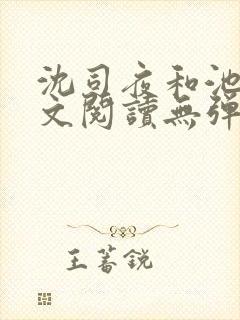 沈司夜和池
文閱讀無彈
王蓍銳